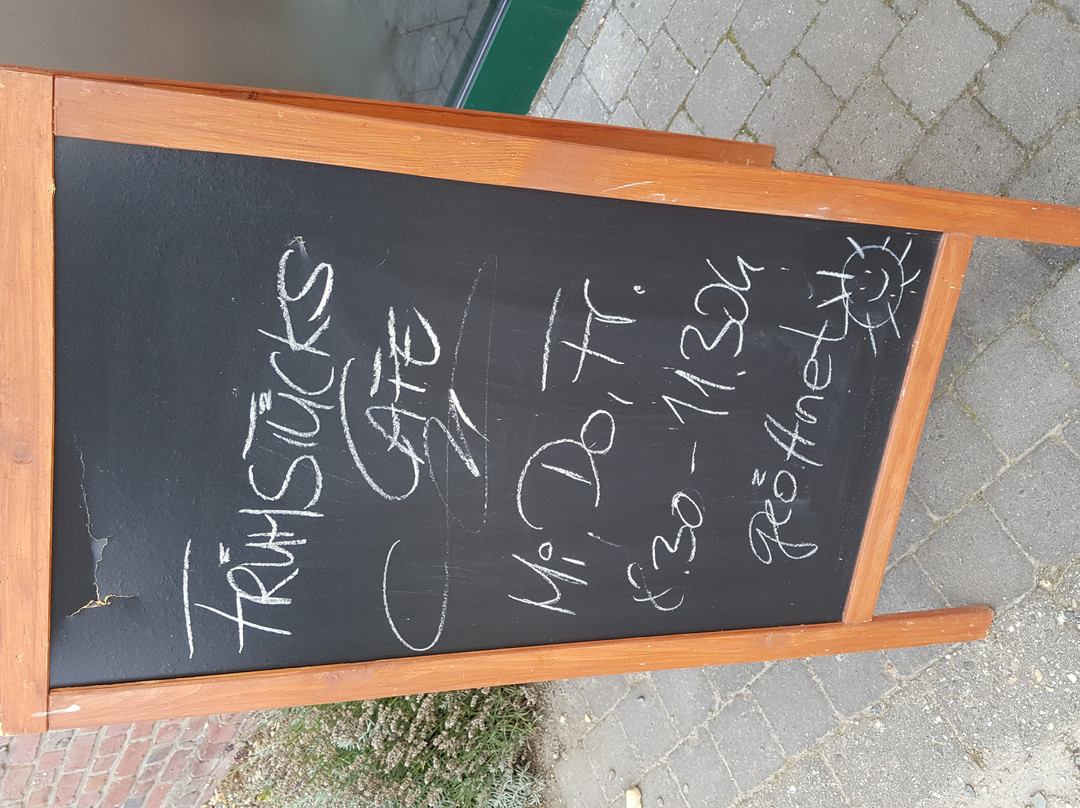 FRÜHSTÜCKS
CAFE
Mi, Do, Fr.
8.30 - 11.30h
geöffnet!